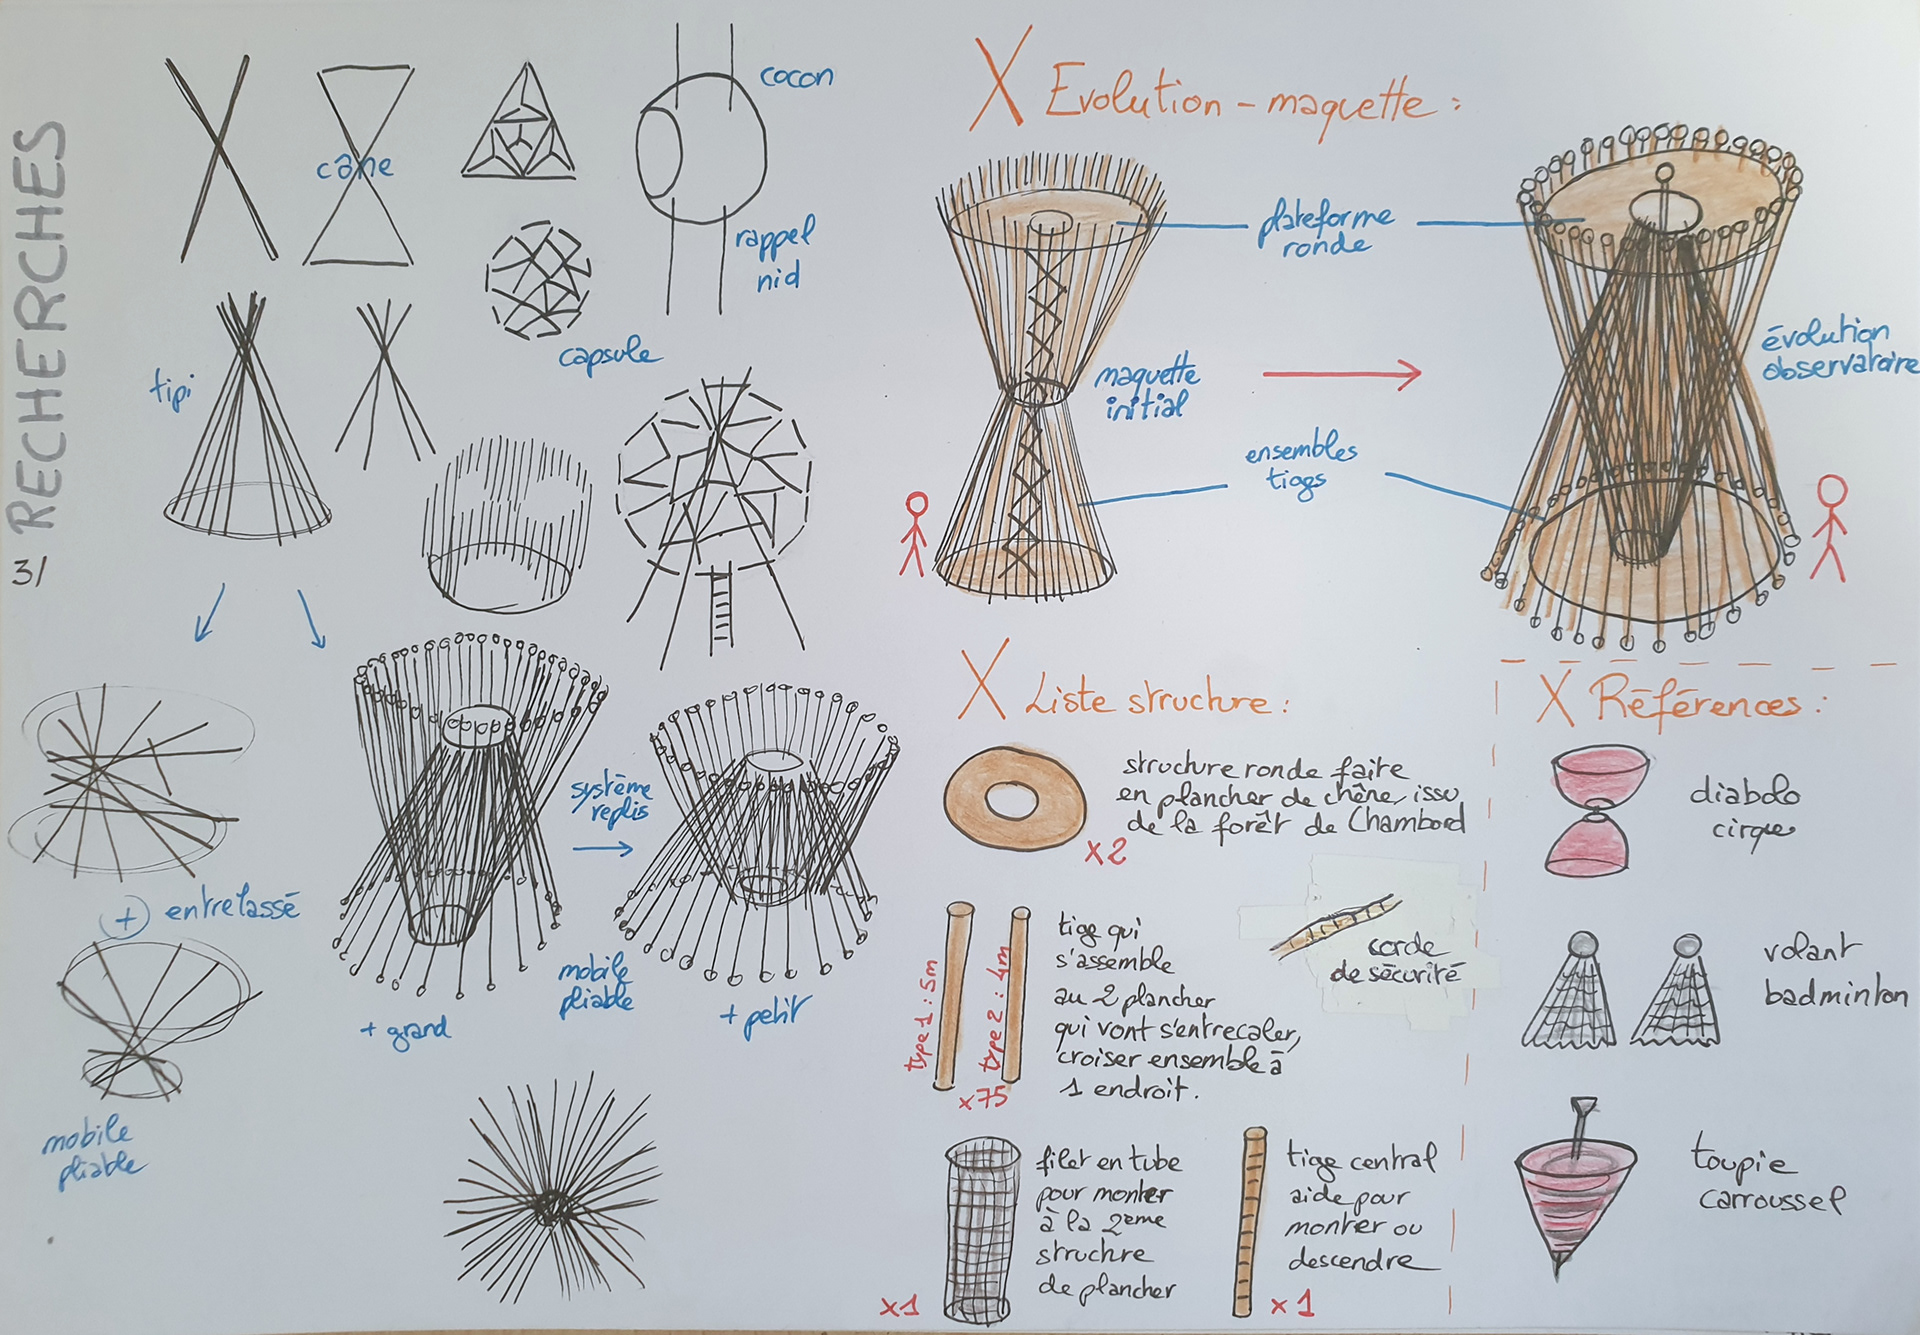 3/ RECHERCHES
cône
cocon
rappel
nid
capsule
tipi
+ entrelassé
mobile
pliable
système
replis
+ grand
mobile
pliable
+ petit
X Evolution - maquette :
plateforme
ronde
maquette
initial
évolution
observatoire
ensembles
tiges
X Liste structure :
structure ronde faite
en plancher de chêne, issu
de la forêt de Chambord
x2
type 1 : 5m
type 2 : 4m
x75
tige qui
s'assemble
au 2 plancher
qui vont s'entrecaler,
croiser ensemble à
1 endroit.
corde
de sécurité
filet en tube
pour monter
à la 2ème
structure
de plancher
x1
tige central
aide pour
monter ou
descendre
x1
X Références :
diabolo
cirque
volant
badminton
toupie
carroussel